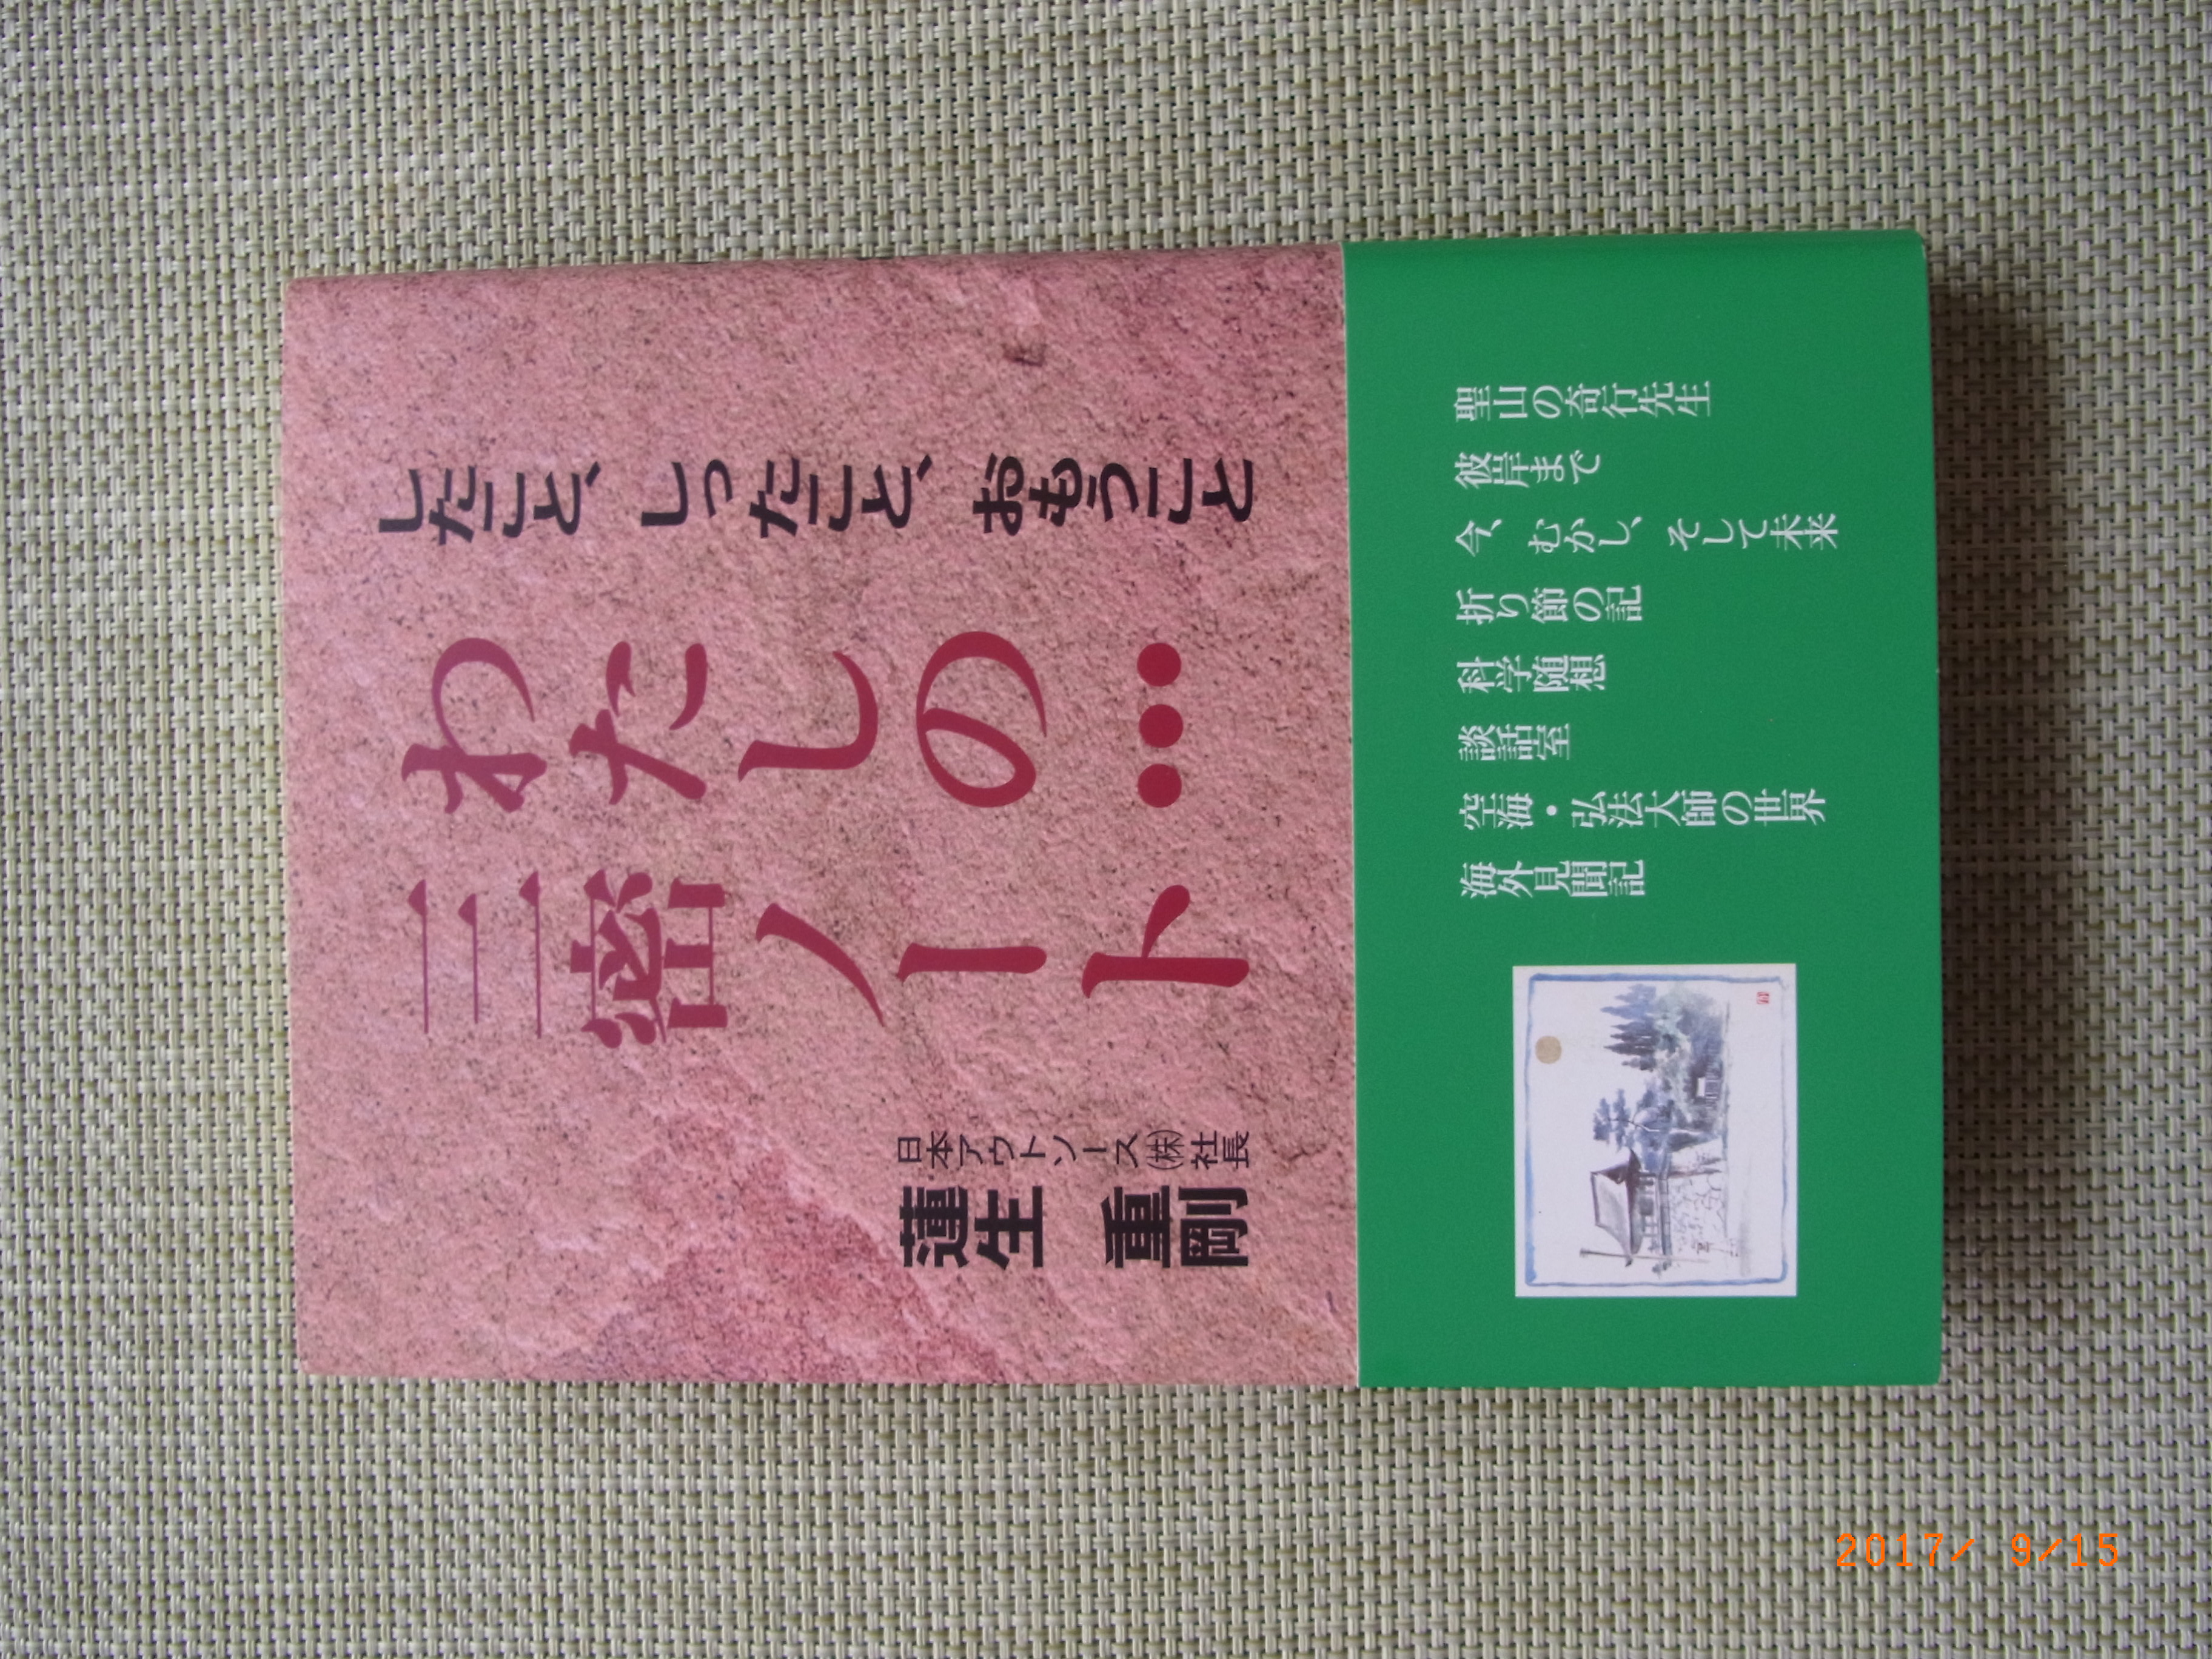 したこと、しったこと、おもうこと
わたしの…
三密ノート
日本アウトソース㈱社長
蓮生 重剛
聖山の奇行先生
彼岸まで
今、むかし、そして未来
折り節の記
科学随想
談話室
空海・弘法大師の世界
海外見聞記
2017/ 9/15